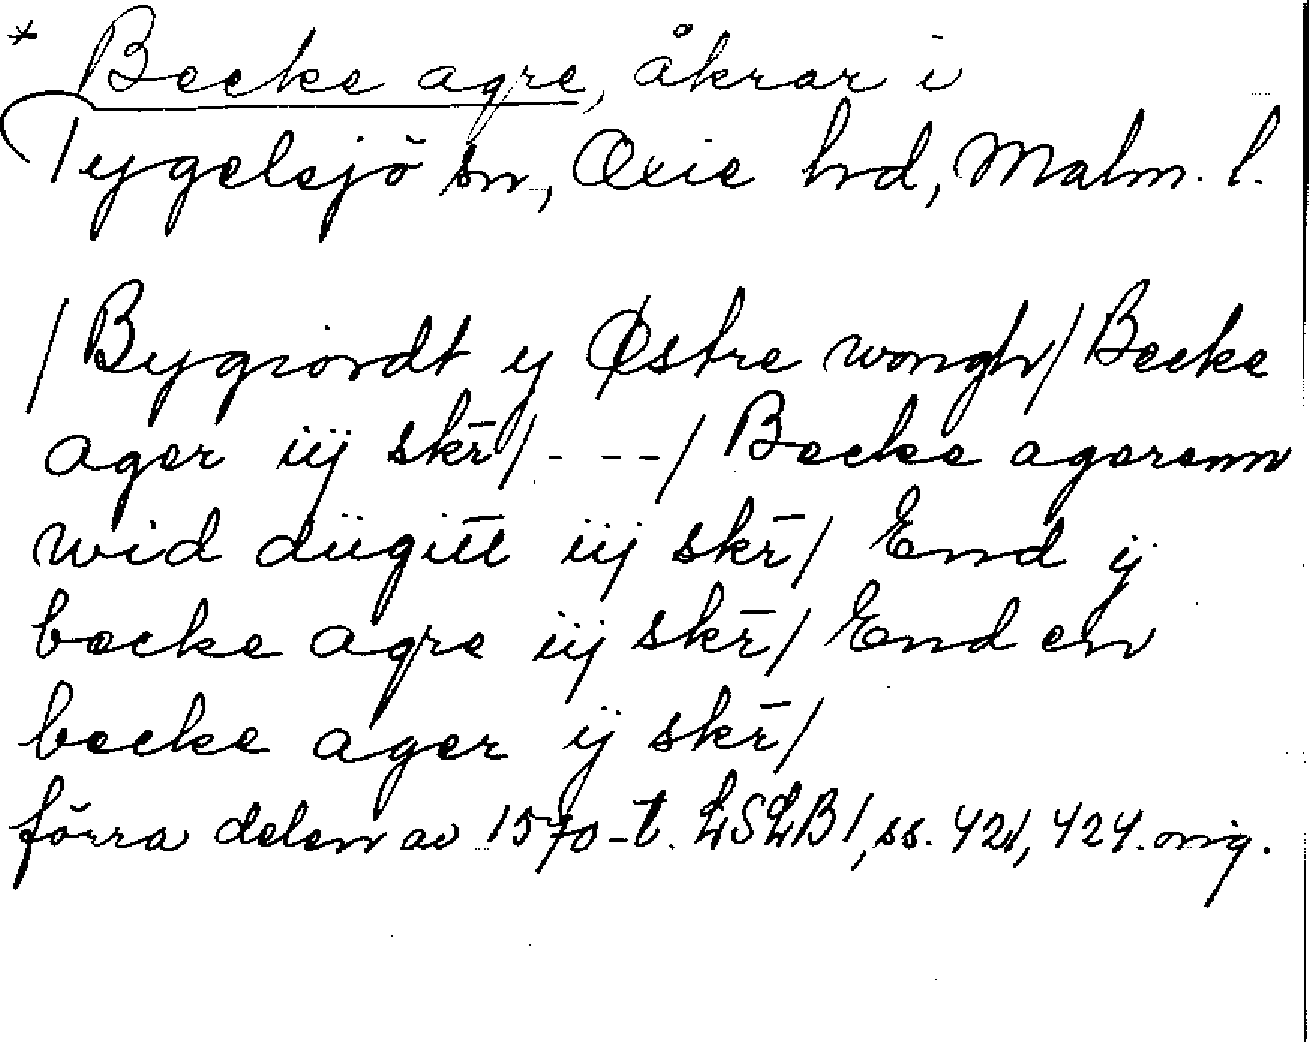 * Becke agre, åkrar i
Tygelsjö sn, Oxie hd, Malm. l.
/Bygiordt y Østre wongh/Becke
ager iij skr̄/- - -/Becke agerenn
wid diigitt iij skr̄/ End ij
becke agre iij skr̄/ End en
becke ager ij skr̄/
förra delen av 1570-t. LSLB1, ss. 421, 424. orig.